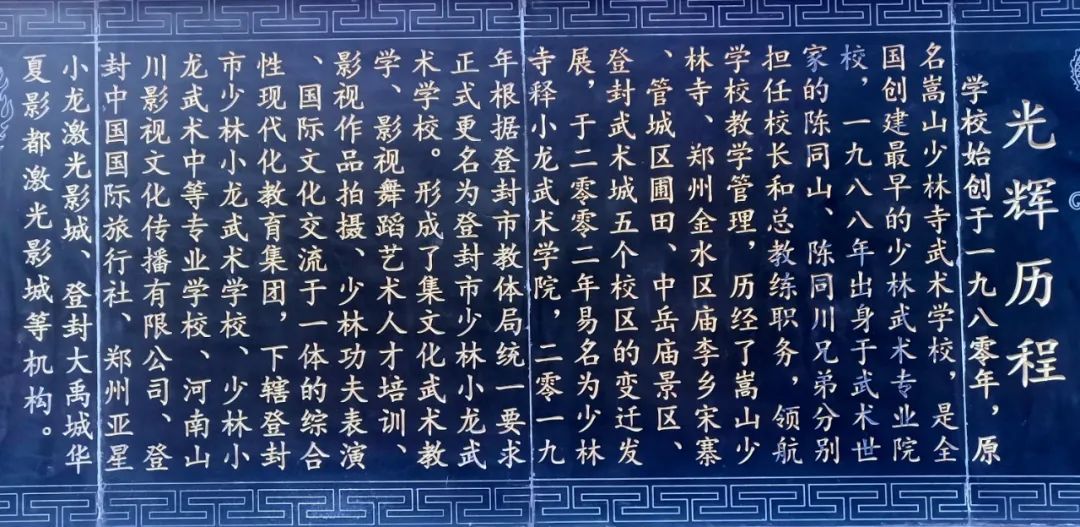 光辉历程
学校始创于一九八零年，原
名嵩山少林寺武术学校，是全
国创建最早的少林武术专业院
校，一九八八年出身于武术世
家的陈同山、陈同川兄弟分别
担任校长和总教练职务，领航
学校教学管理，历经了嵩山少
林寺、郑州金水区庙李乡宋寨
、管城区圃田、中岳庙景区、
登封武术城五个校区的变迁发
展，于二零零二年易名为少林
寺释小龙武术学院，二零一九
年根据登封市教体局统一要求
正式更名为登封市少林小龙武
术学校。形成了集文化武术教
学、影视舞蹈艺术人才培训、
影视作品拍摄、少林功夫表演
、国际文化交流于一体的综合
性现代化教育集团，下辖登封
市少林小龙武术学校、少林小
龙武术中等专业学校、河南山
川影视文化传播有限公司、登
封中国国际旅行社、郑州亚星
小龙激光影城、登封大禹城华
夏影都激光影城等机构。